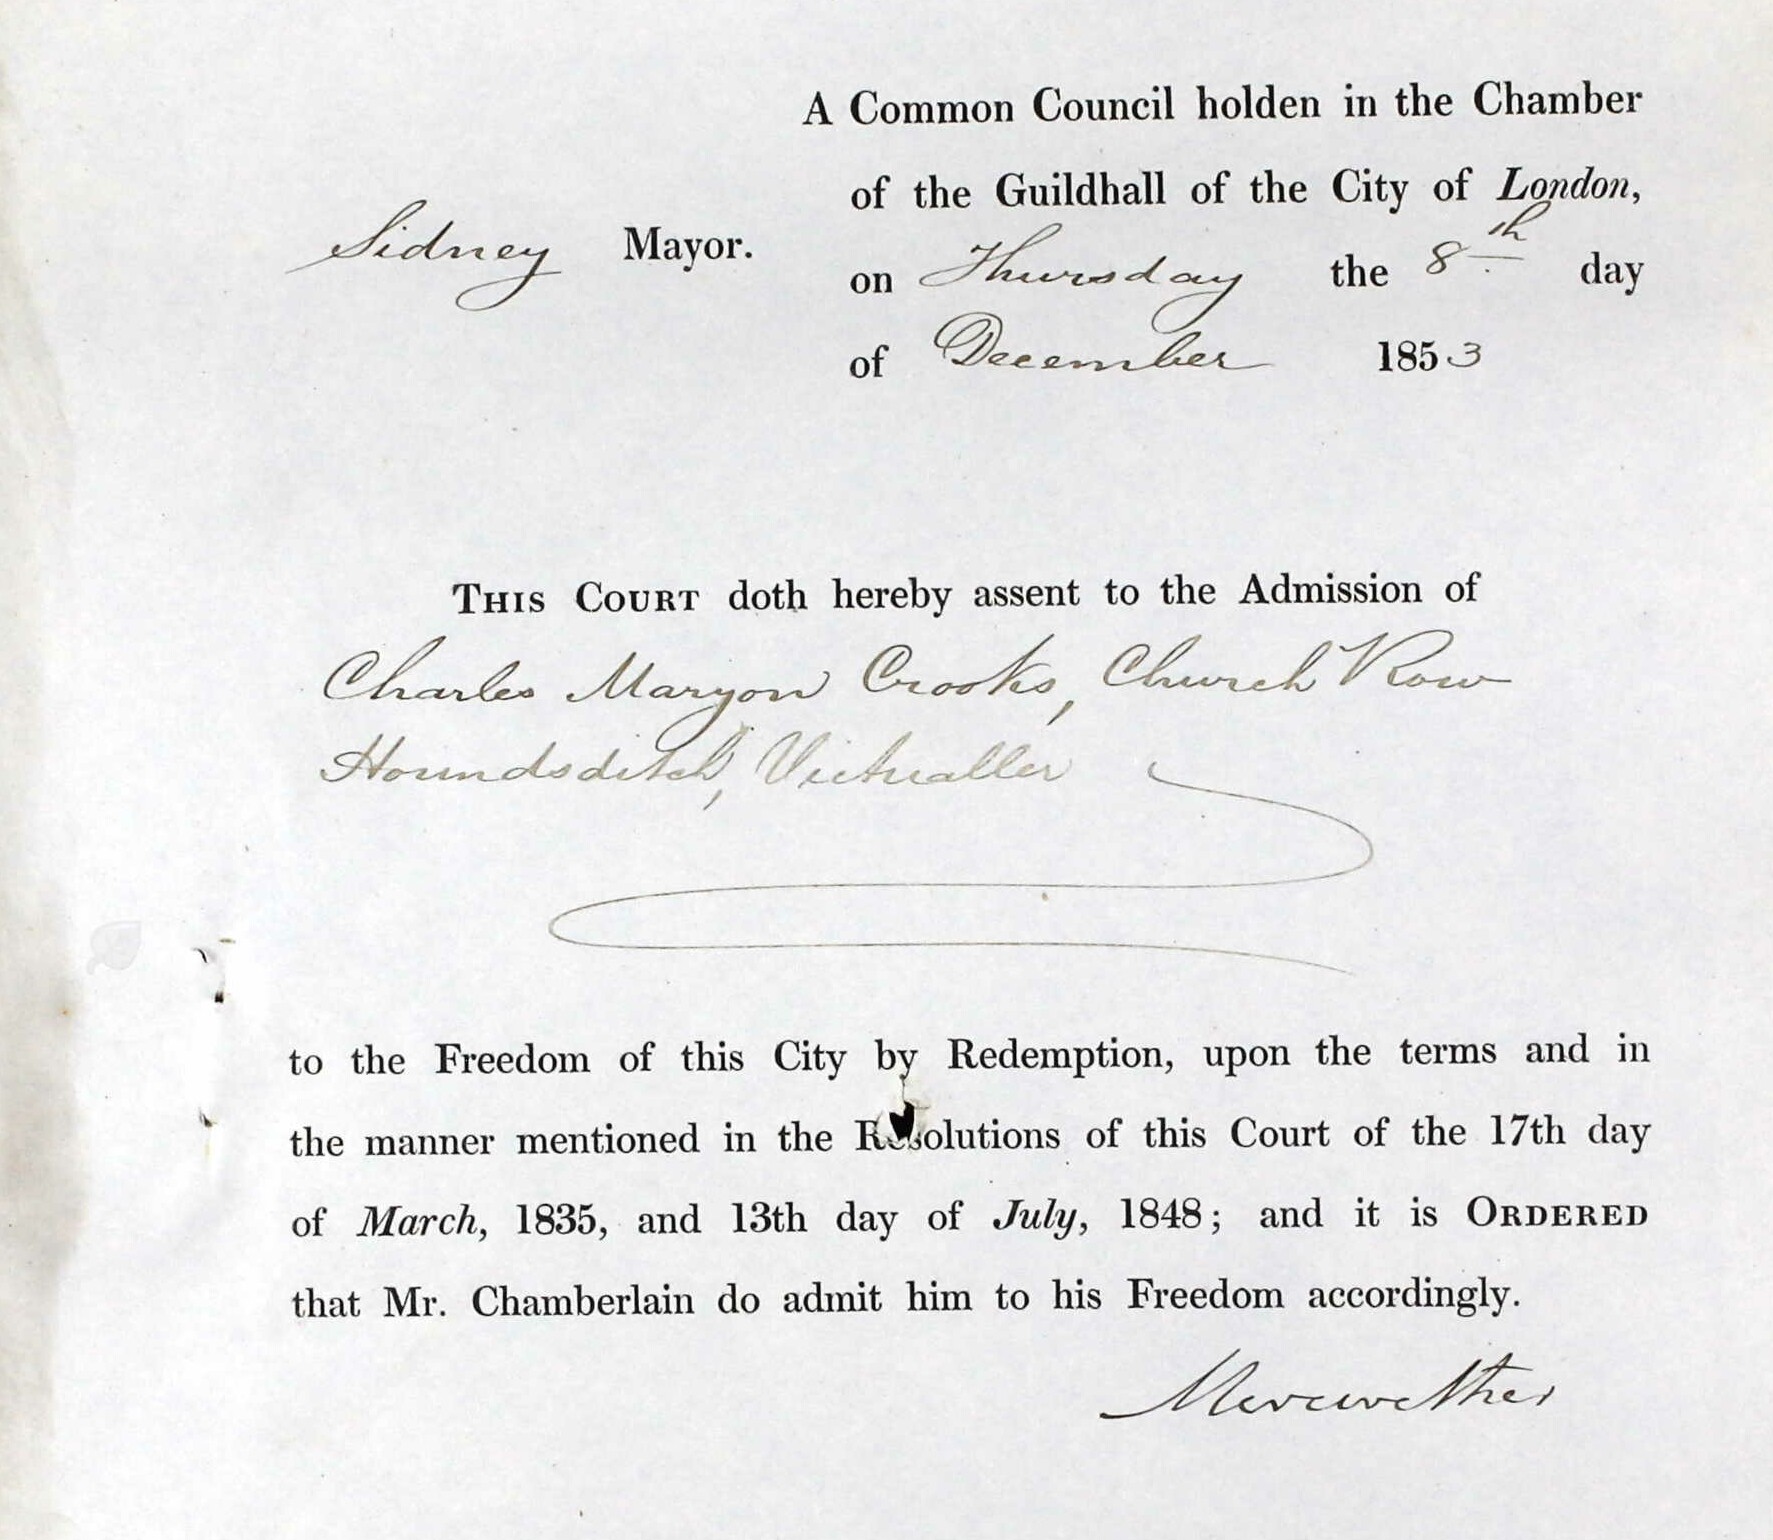 A Common Council holden in the Chamber
of the Guildhall of the City of London,
Sidney Mayor.
on Thursday the 8th day
of December 1853
THIS COURT doth hereby assent to the Admission of
Charles Maryon Crooks, Church Row
Houndsditch, Victualler
to the Freedom of this City by Redemption, upon the terms and in
the manner mentioned in the Resolutions of this Court of the 17th day
of March, 1835, and 13th day of July, 1848; and it is ORDERED
that Mr. Chamberlain do admit him to his Freedom accordingly.
Merewether